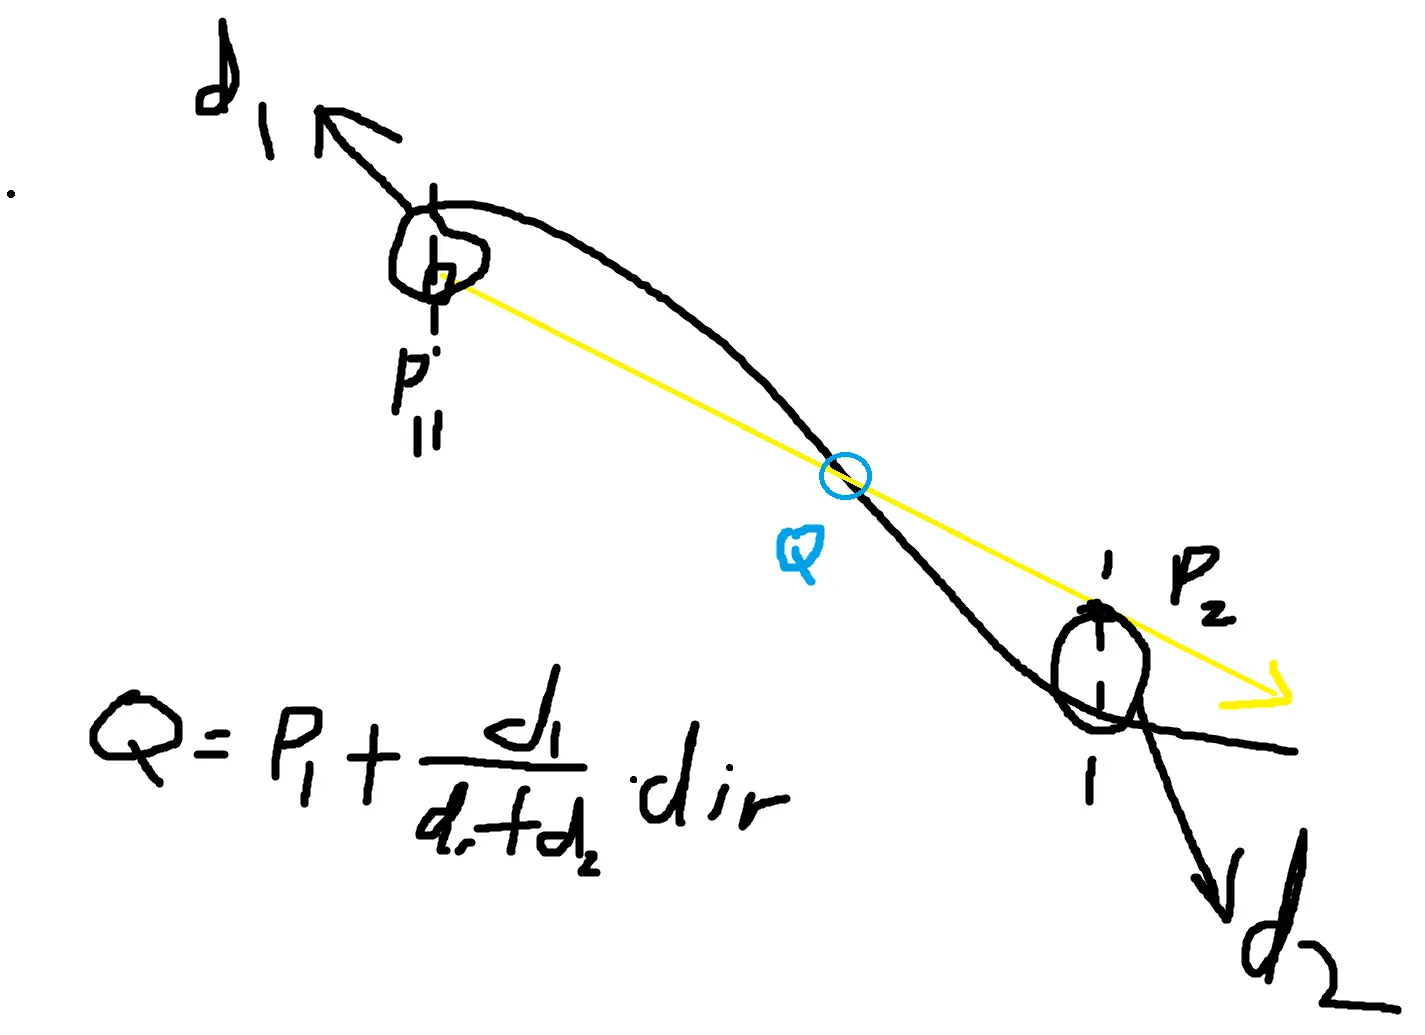 d₁
P₁
Q
P₂
Q = P₁ + d₁/(d₁+d₂) · dir
d₂